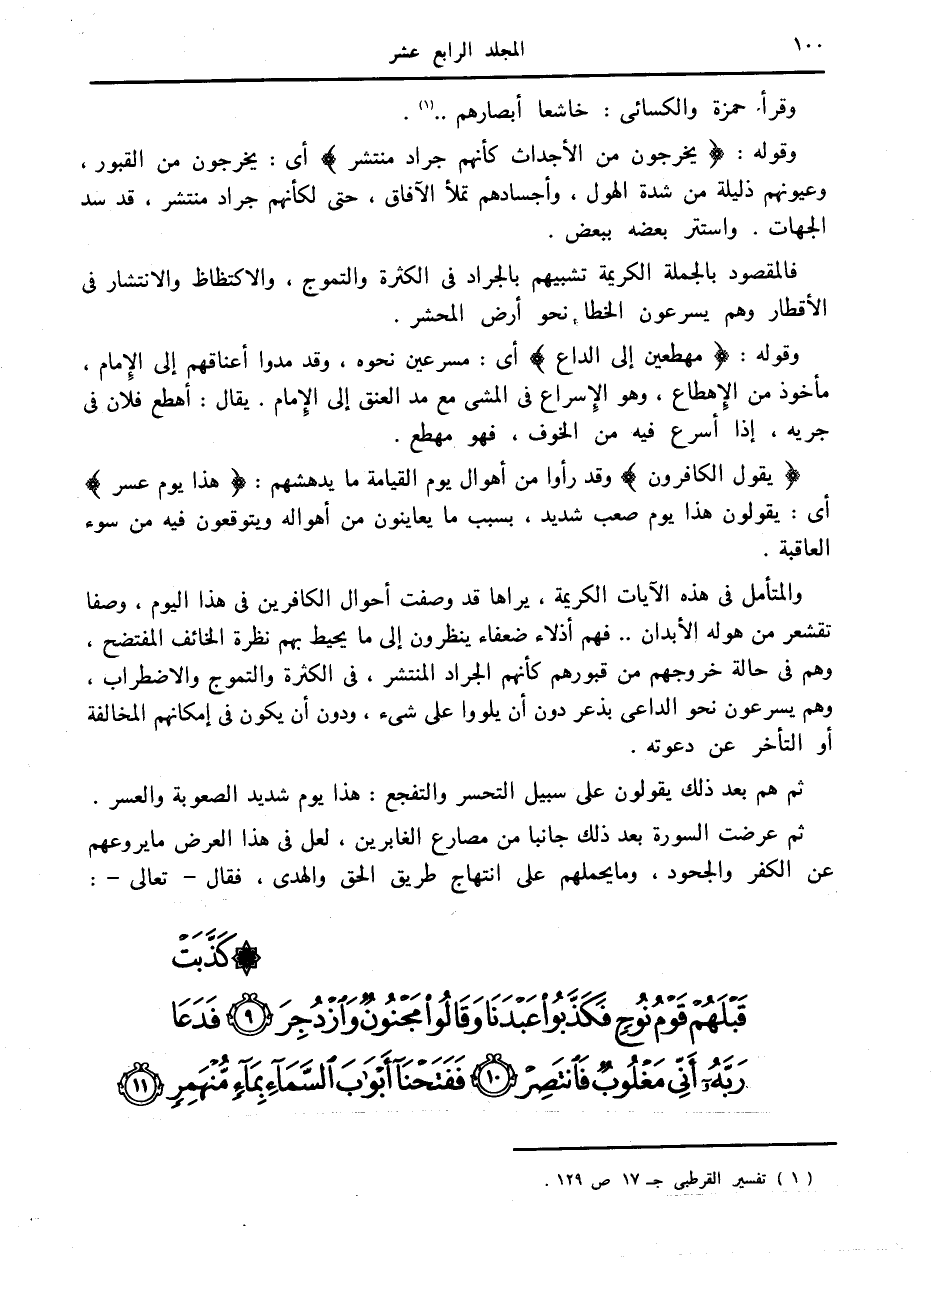 ١٠٠
المجلد الرابع عشر
وقرأ حمزة والكسائى : خاشعا أبصارهم ..(١) .
وقوله : ﴿ يخرجون من الأجداث كأنهم جراد منتشر ﴾ أى : يخرجون من القبور ،
وعيونهم ذليلة من شدة الهول ، وأجسادهم تملأ الآفاق ، حتى لكأنهم جراد منتشر ، قد سد
الجهات . واستتر بعضه ببعض .
فالمقصود بالجملة الكريمة تشبيههم بالجراد فى الكثرة والتموج ، والاكتظاظ والانتشار فى
الأقطار وهم يسرعون الخطا نحو أرض المحشر .
وقوله : ﴿ مهطعين إلى الداع ﴾ أى : مسرعين نحوه ، وقد مدوا أعناقهم إلى الإمام ،
مأخوذ من الإهطاع ، وهو الإسراع فى المشى مع مد العنق إلى الإمام . يقال : أهطع فلان فى
جريه ، إذا أسرع فيه من الخوف ، فهو مهطع .
﴿ يقول الكافرون ﴾ وقد رأوا من أهوال يوم القيامة ما يدهشهم : ﴿ هذا يوم عسر ﴾
أى : يقولون هذا يوم صعب شديد ، بسبب ما يعاينون من أهواله ويتوقعون فيه من سوء
العاقبة .
والمتأمل فى هذه الآيات الكريمة ، يراها قد وصفت أحوال الكافرين فى هذا اليوم ، وصفا
تقشعر من هوله الأبدان .. فهم أذلاء ضعفاء ينظرون إلى ما يحيط بهم نظرة الخائف المفتضح ،
وهم فى حالة خروجهم من قبورهم كأنهم الجراد المنتشر ، فى الكثرة والتموج والاضطراب ،
وهم يسرعون نحو الداعى بذعر دون أن يلووا على شىء ، ودون أن يكون فى إمكانهم المخالفة
أو التأخر عن دعوته .
ثم هم بعد ذلك يقولون على سبيل التحسر والتفجع : هذا يوم شديد الصعوبة والعسر .
ثم عرضت السورة بعد ذلك جانبا من مصارع الغابرين ، لعل فى هذا العرض مايروعهم
عن الكفر والجحود ، ومايحملهم على انتهاج طريق الحق والهدى ، فقال – تعالى – :
۞ كَذَّبَتْ
قَبْلَهُمْ قَوْمُ نُوحٍ فَكَذَّبُوا۟ عَبْدَنَا وَقَالُوا۟ مَجْنُونٌ وَٱزْدُجِرَ ٩ فَدَعَا
رَبَّهُۥٓ أَنِّى مَغْلُوبٌ فَٱنتَصِرْ ١٠ فَفَتَحْنَآ أَبْوَٰبَ ٱلسَّمَآءِ بِمَآءٍ مُّنْهَمِرٍ ١١
( ١ ) تفسير القرطبى جـ ١٧ ص ١٢٩ .